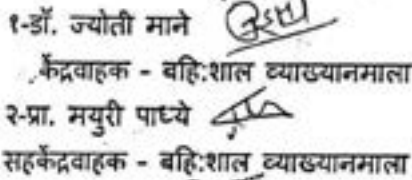 १-डॉ. ज्योती माने
केंद्रवाहक - बहि:शाल व्याख्यानमाला
२-प्रा. मयुरी पाध्ये
सहकेंद्रवाहक - बहि:शाल व्याख्यानमाला